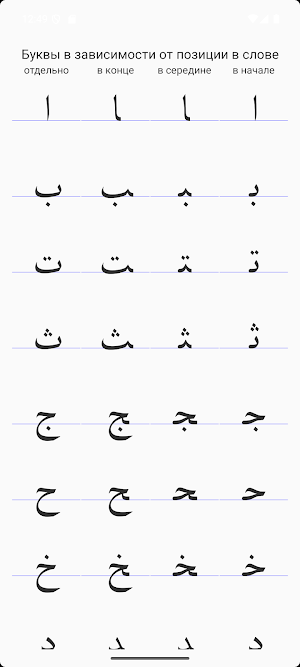 Буквы в зависимости от позиции в слове
отдельно в конце в середине в начале
ا ـا ـا ا
ب ـب ـبـ بـ
ت ـت ـتـ تـ
ث ـث ـثـ ثـ
ج ـج ـجـ جـ
ح ـح ـحـ حـ
خ ـخ ـخـ خـ